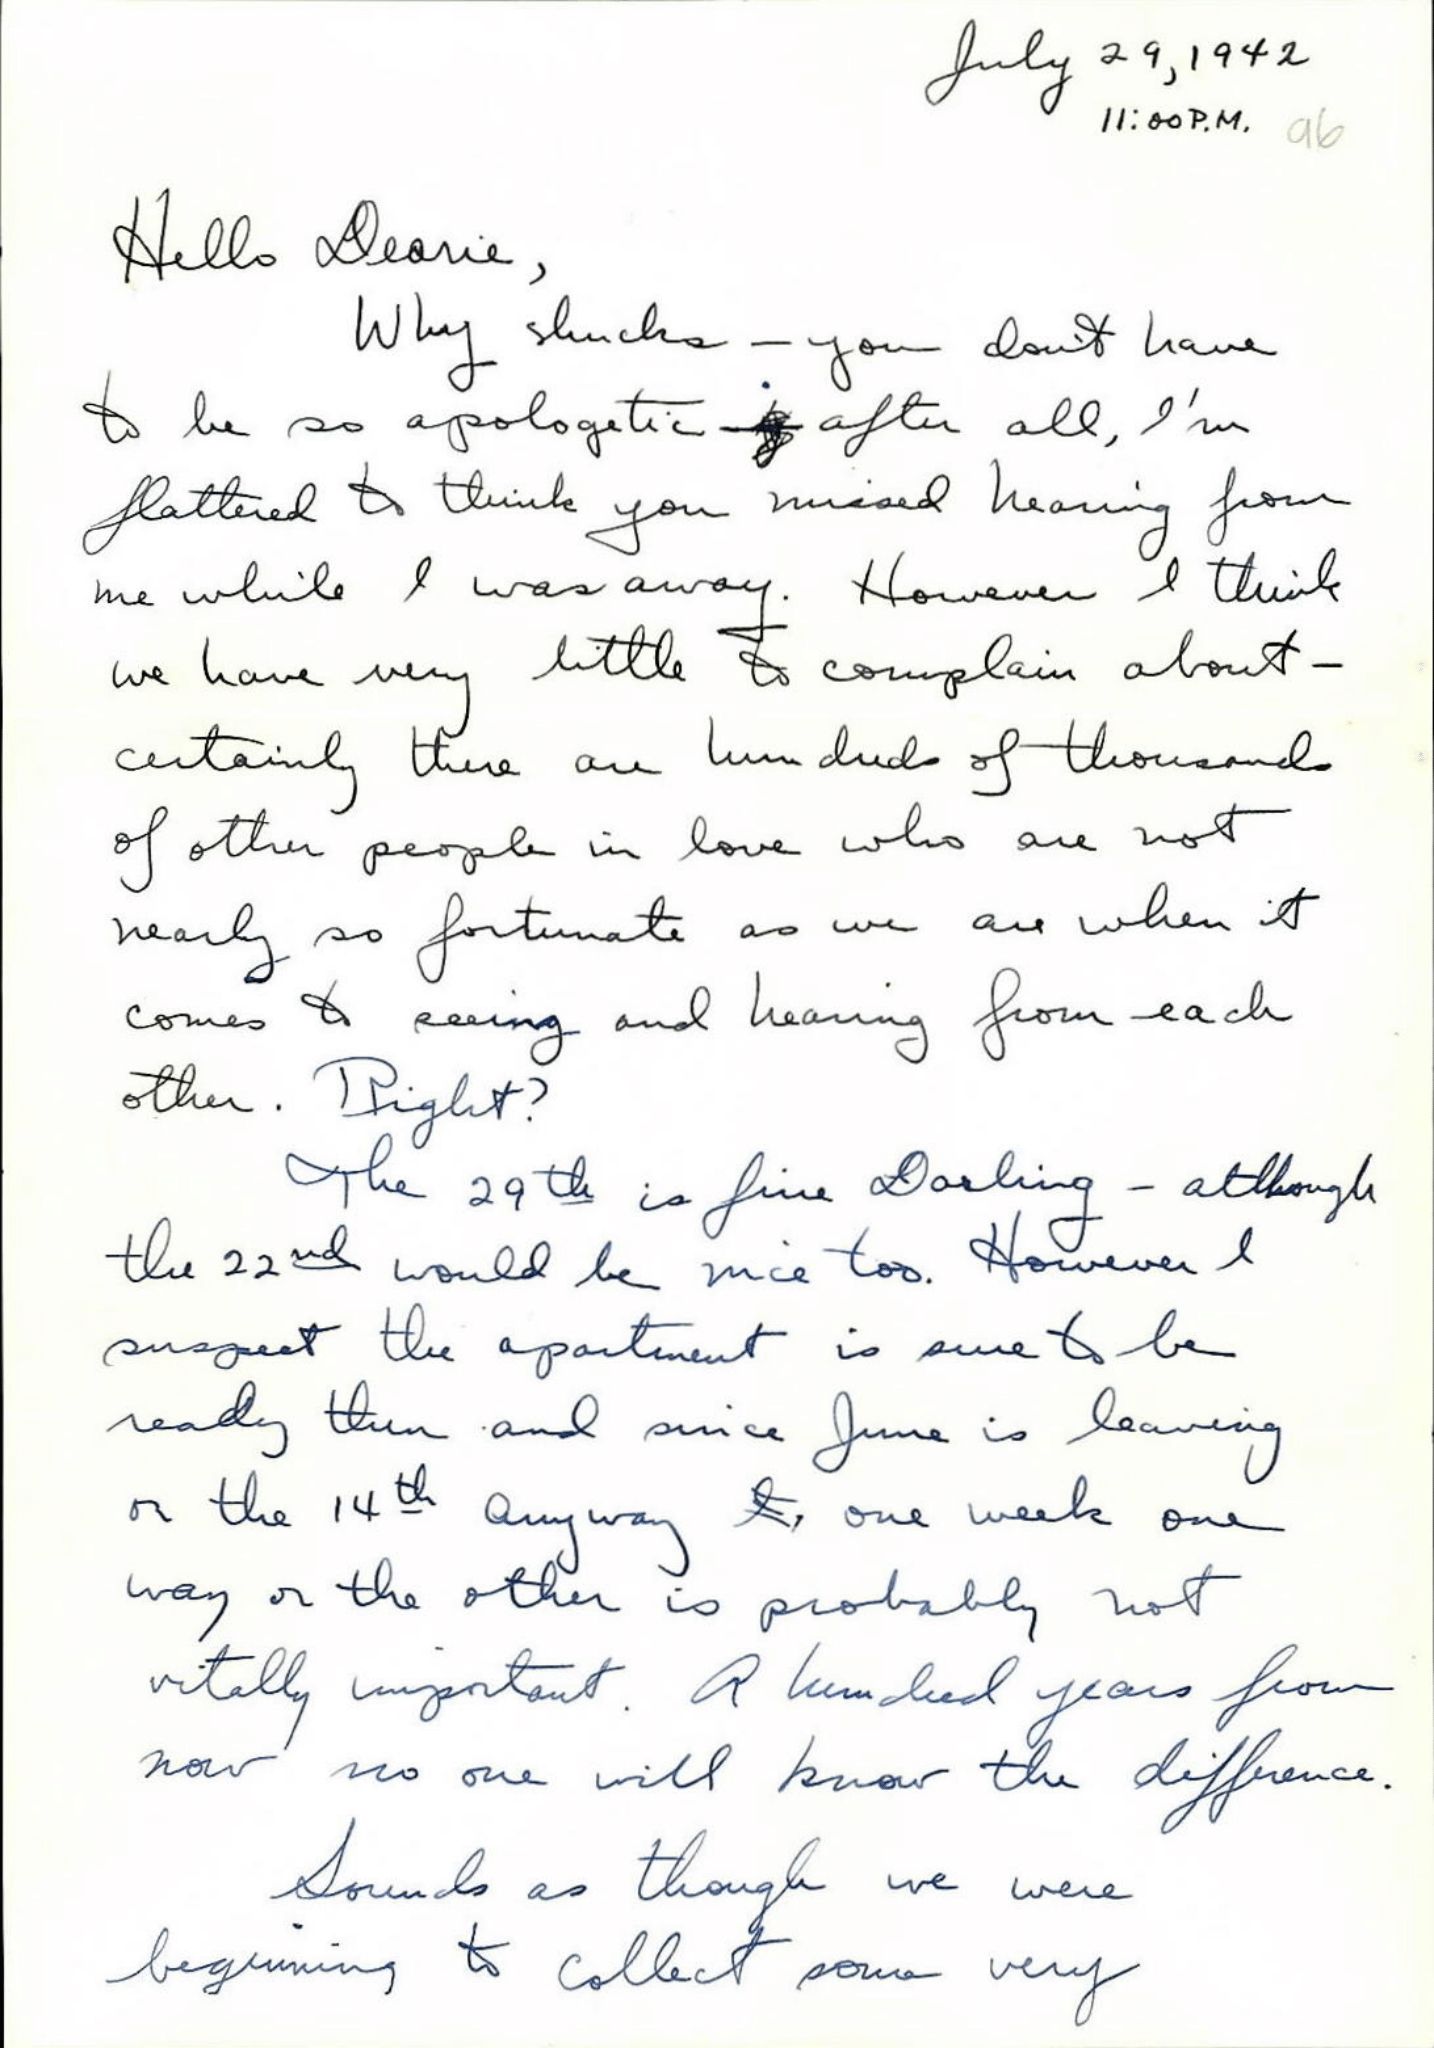 July 29, 1942
11:00 P.M. 96
Hello Dearie,
Why shucks – you don't have
to be so apologetic – after all, I'm
flattered to think you missed hearing from
me while I was away. However I think
we have very little to complain about –
certainly there are hundreds of thousands
of other people in love who are not
nearly so fortunate as we are when it
comes to seeing and hearing from each
other. Right?
The 29th is fine Darling – although
the 22nd would be nice too. However I
suspect the apartment is sure to be
ready then and since June is leaving
on the 14th anyway, one week one
way or the other is probably not
vitally important. A hundred years from
now no one will know the difference.
Sounds as though we were
beginning to collect some very